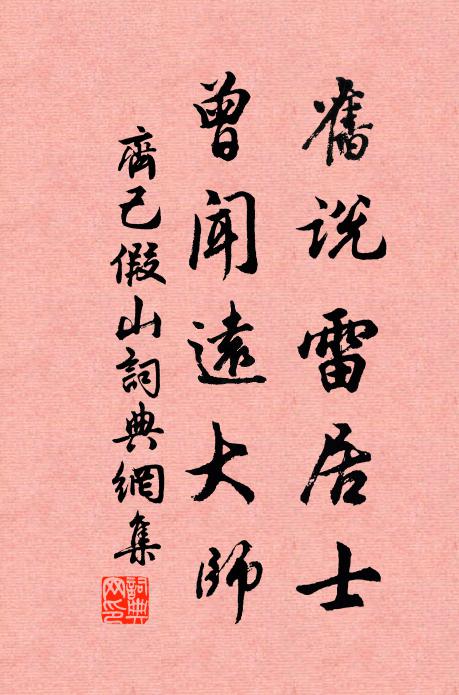 舊說雷居士
曾聞遠大師
齊己假山詞典網集
詞典网印